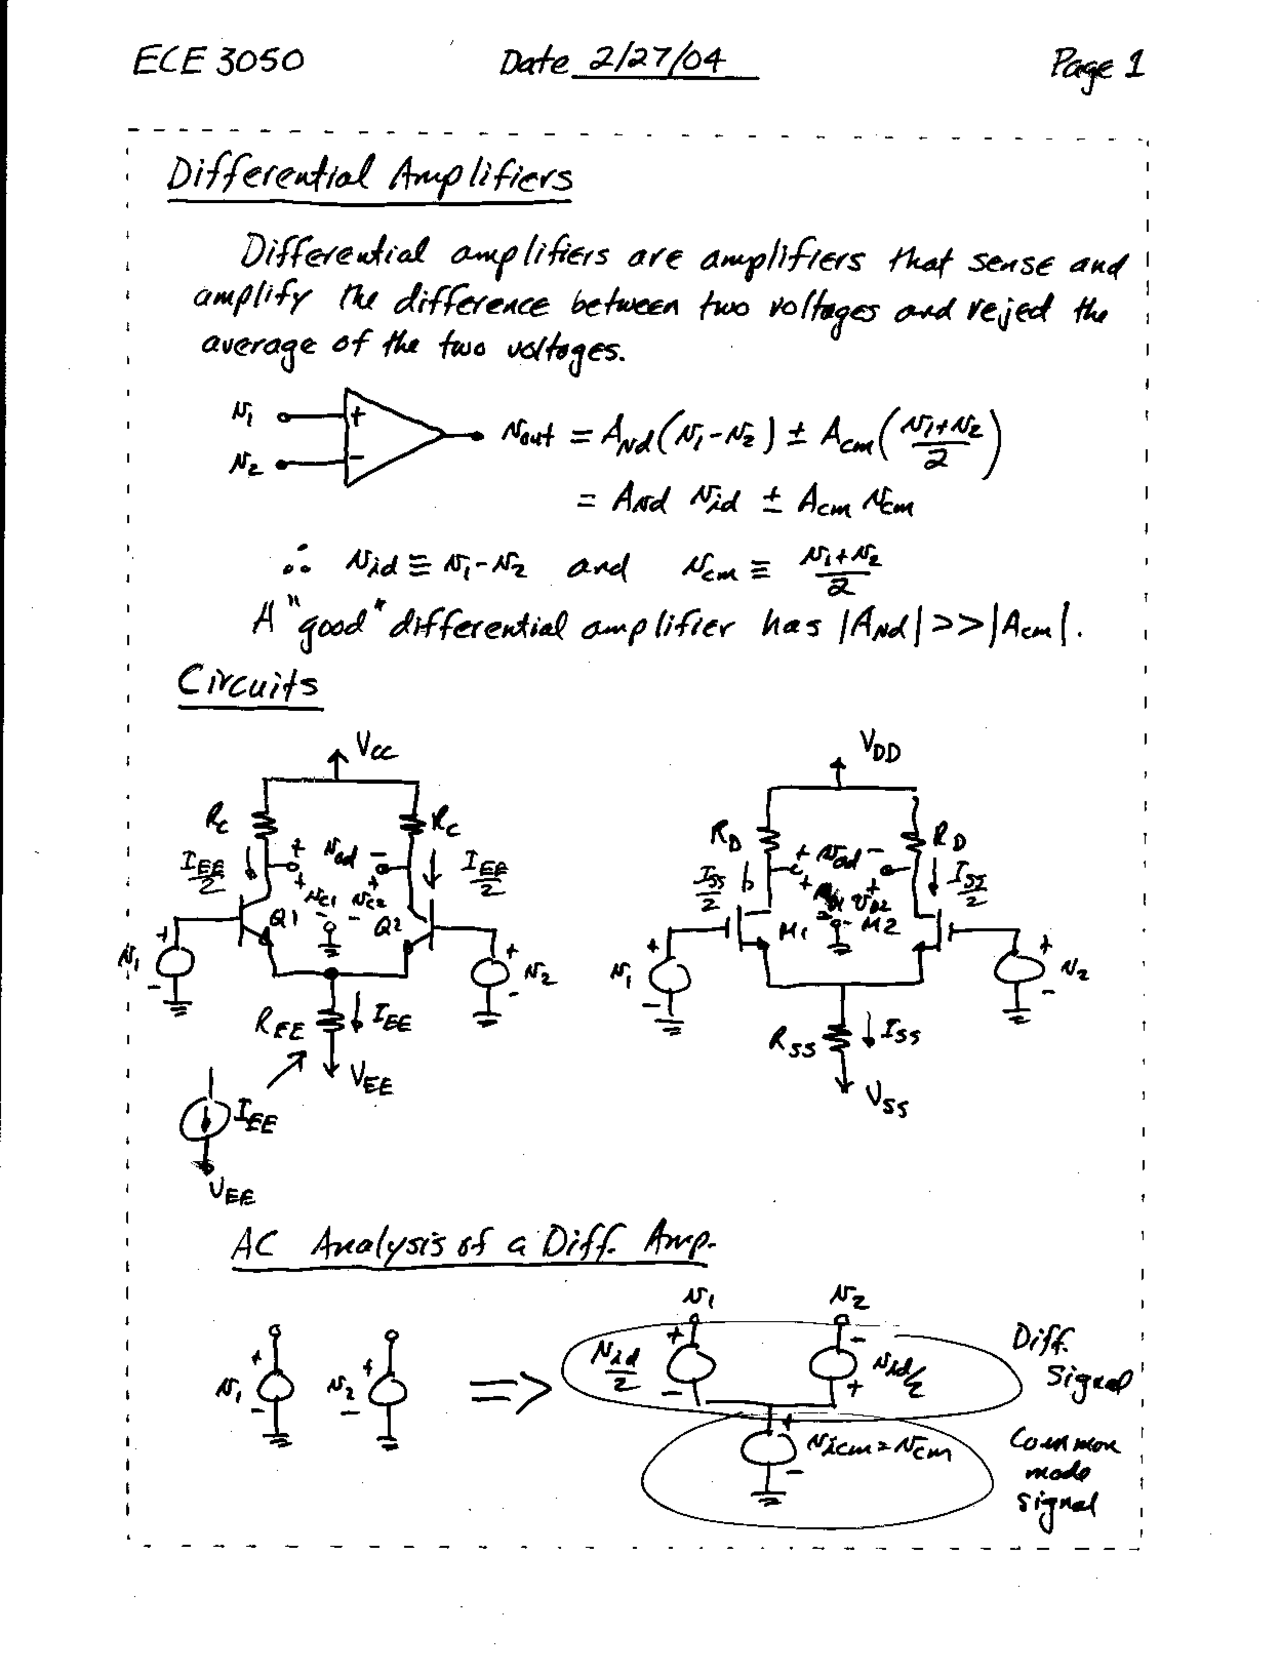 ECE 3050 Date 2/27/04 Page 1
Differential Amplifiers
Differential amplifiers are amplifiers that sense and
amplify the difference between two voltages and reject the
average of the two voltages.
v1
v2
+
-
vout = Avd(v1-v2) ± Acm((v1+v2)/2)
= Avd vid ± Acm vcm
∴ vid ≡ v1-v2 and vcm ≡ (v1+v2)/2
A "good" differential amplifier has |Avd| >> |Acm|.
Circuits
VCC
RC RC
IEE/2 + vod - IEE/2
+ vC1 - vC2 + -
Q1 Q2
+ v1 - + v2 -
REE IEE
VEE
IEE
VEE
VDD
RD RD
ISS/2 + vod - ISS/2
+ vD2 + -
M1 M2
+ v1 - + v2 -
RSS ISS
VSS
AC Analysis of a Diff. Amp.
+ v1 - + v2 - => v1 v2
vid/2 + - - + vid/2 Diff. Signal
+ vicm = vcm - Common mode signal